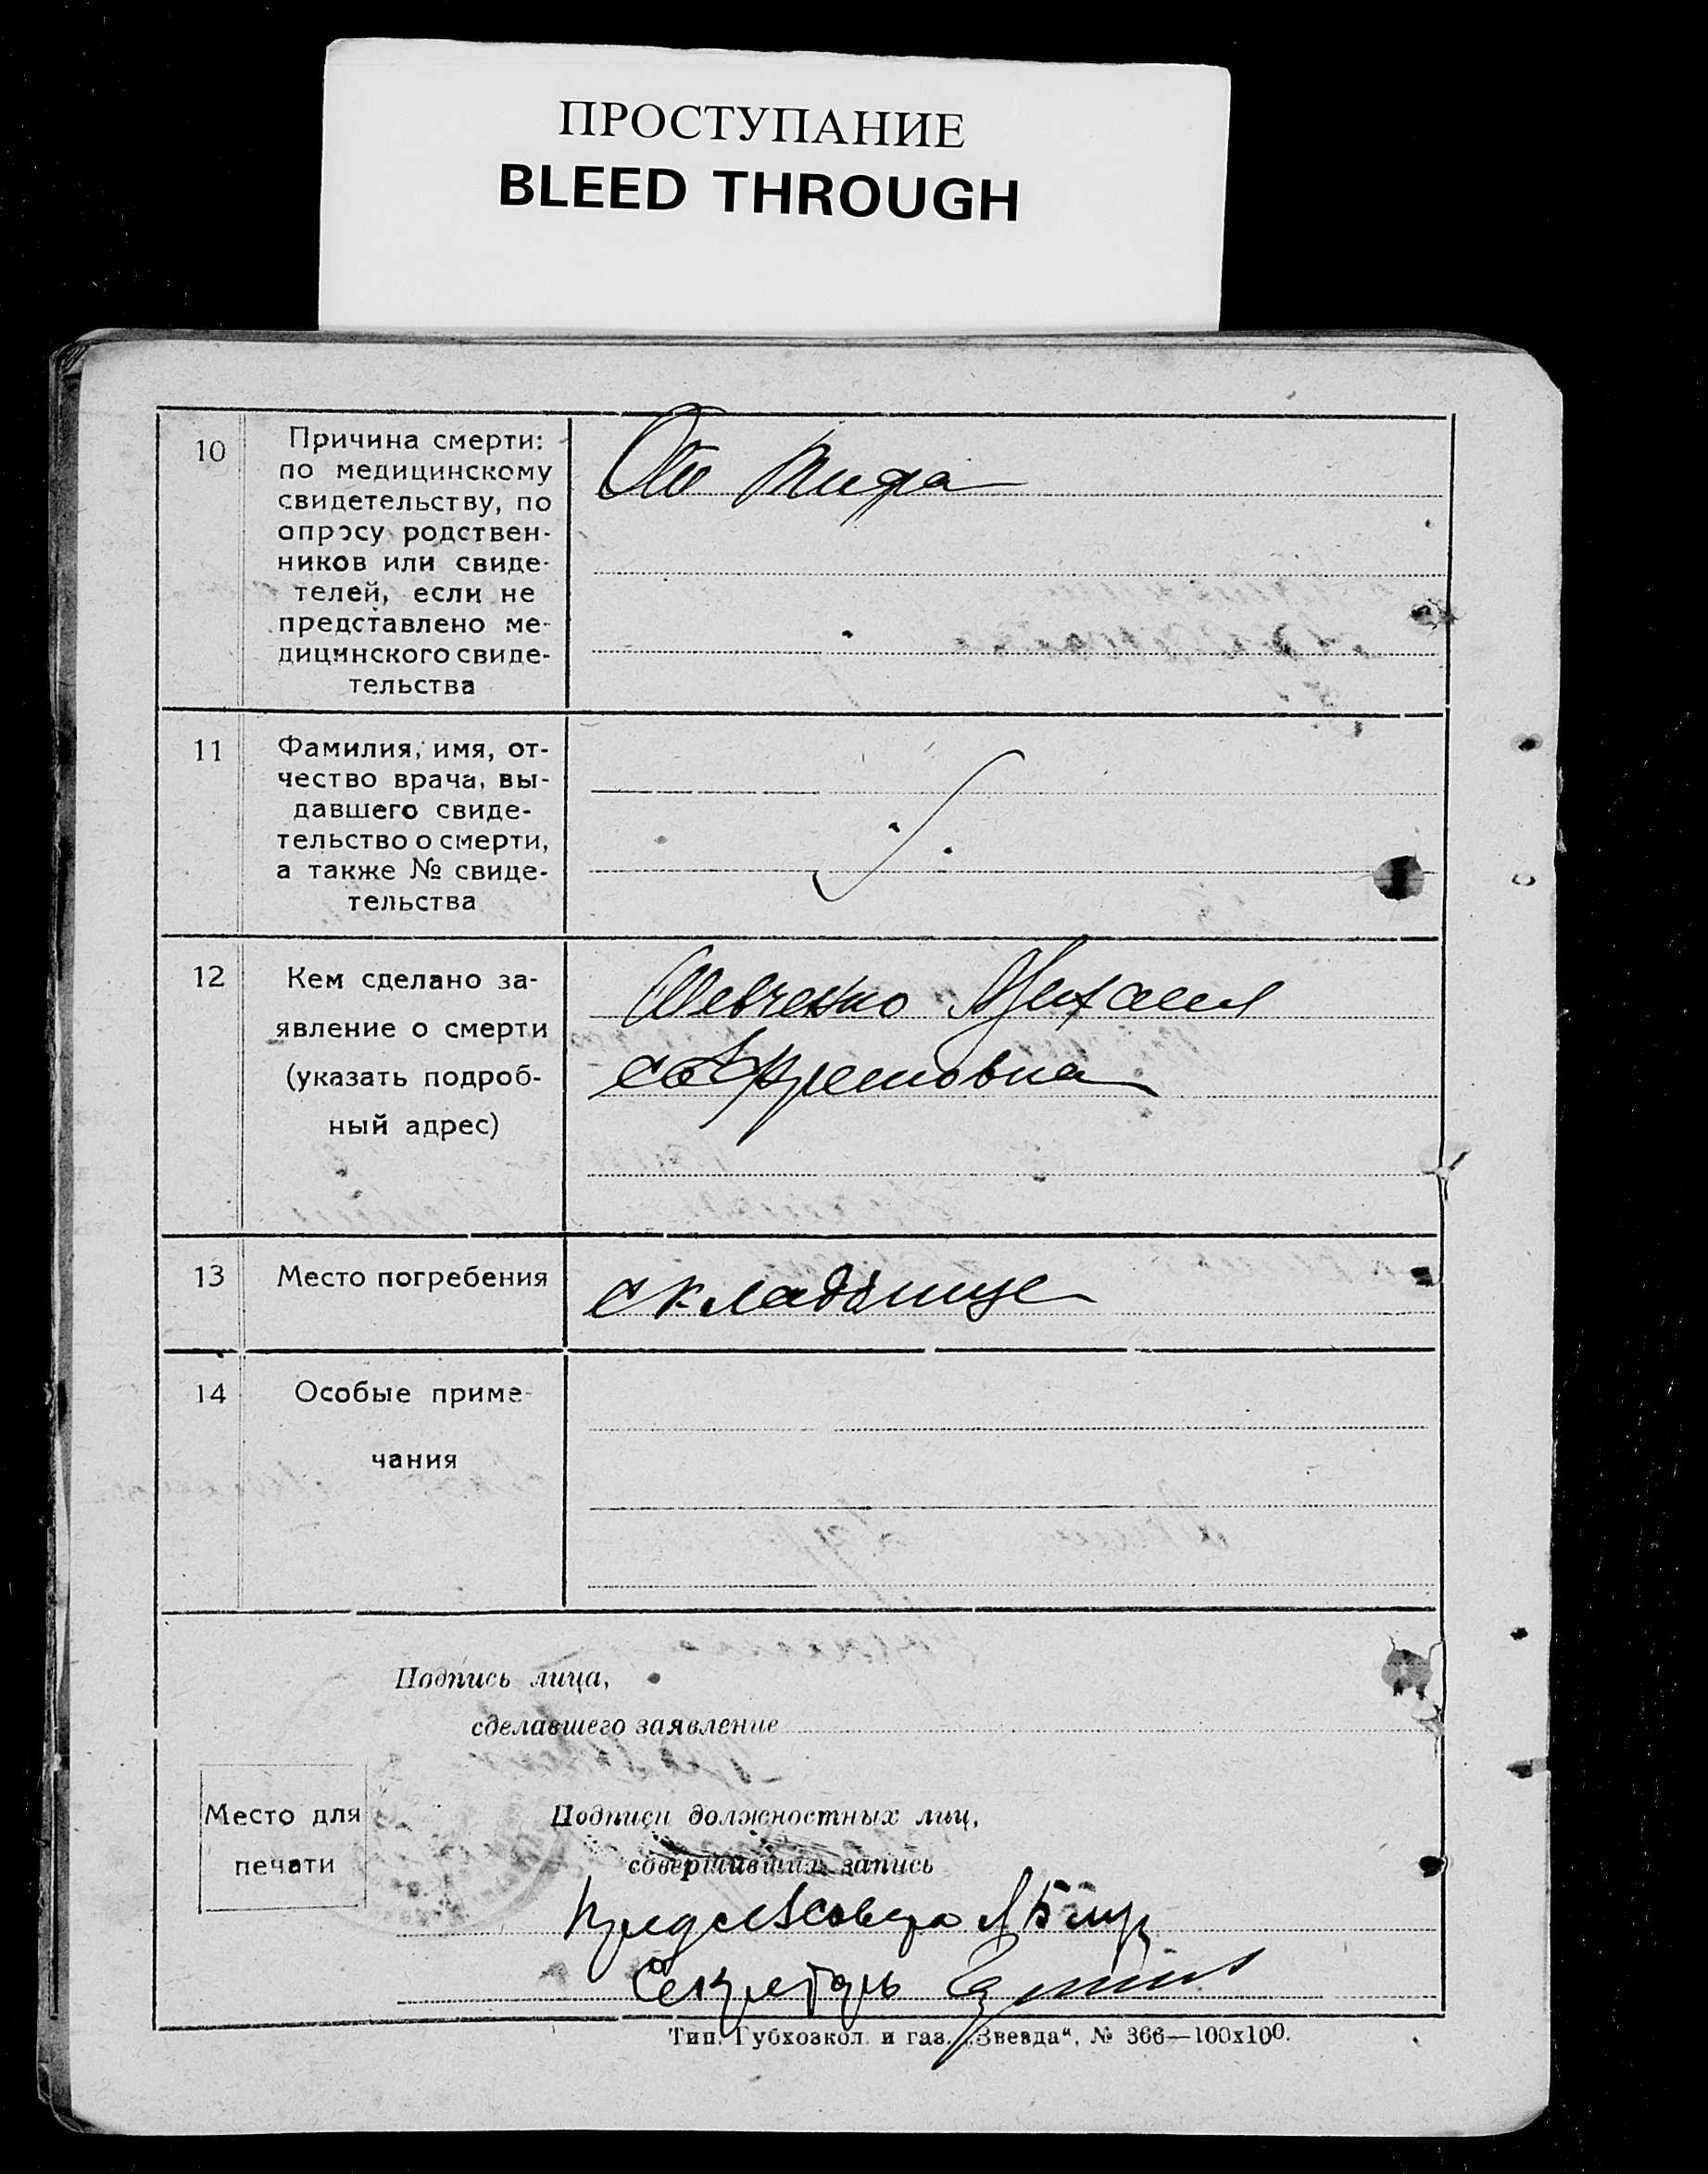 ПРОСТУПАНИЕ
BLEED THROUGH
10
Причина смерти:
по медицинскому
свидетельству, по
опросу родствен-
ников или свиде-
телей, если не
представлено ме-
дицинского свиде-
тельства
От тифа
11
Фамилия, имя, от-
чество врача, вы-
давшего свиде-
тельство о смерти,
а также № свиде-
тельства
12
Кем сделано за-
явление о смерти
(указать подроб-
ный адрес)
Шевченко
13
Место погребения
кладбище
14
Особые приме-
чания
Подпись лица,
сделавшего заявление
Место для
печати
Подписи должностных лиц,
совершивших запись
Секретарь
Тип. Губхозкол. и газ. „Звезда“, № 366—100х100.